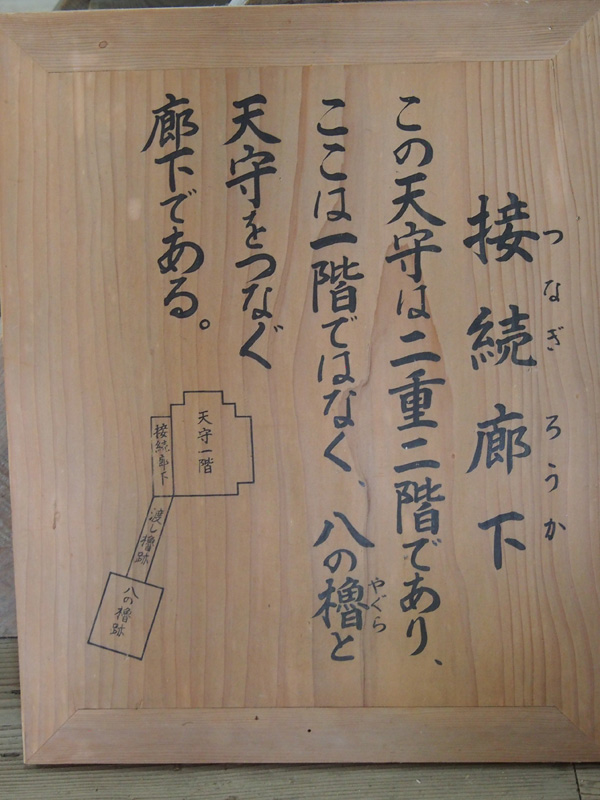 接続廊下
つなぎ ろうか
この天守は二重二階であり、
ここは一階ではなく、八の櫓と
やぐら
天守をつなぐ
廊下である。
天守一階
接続廊下
渡し櫓跡
八の櫓跡